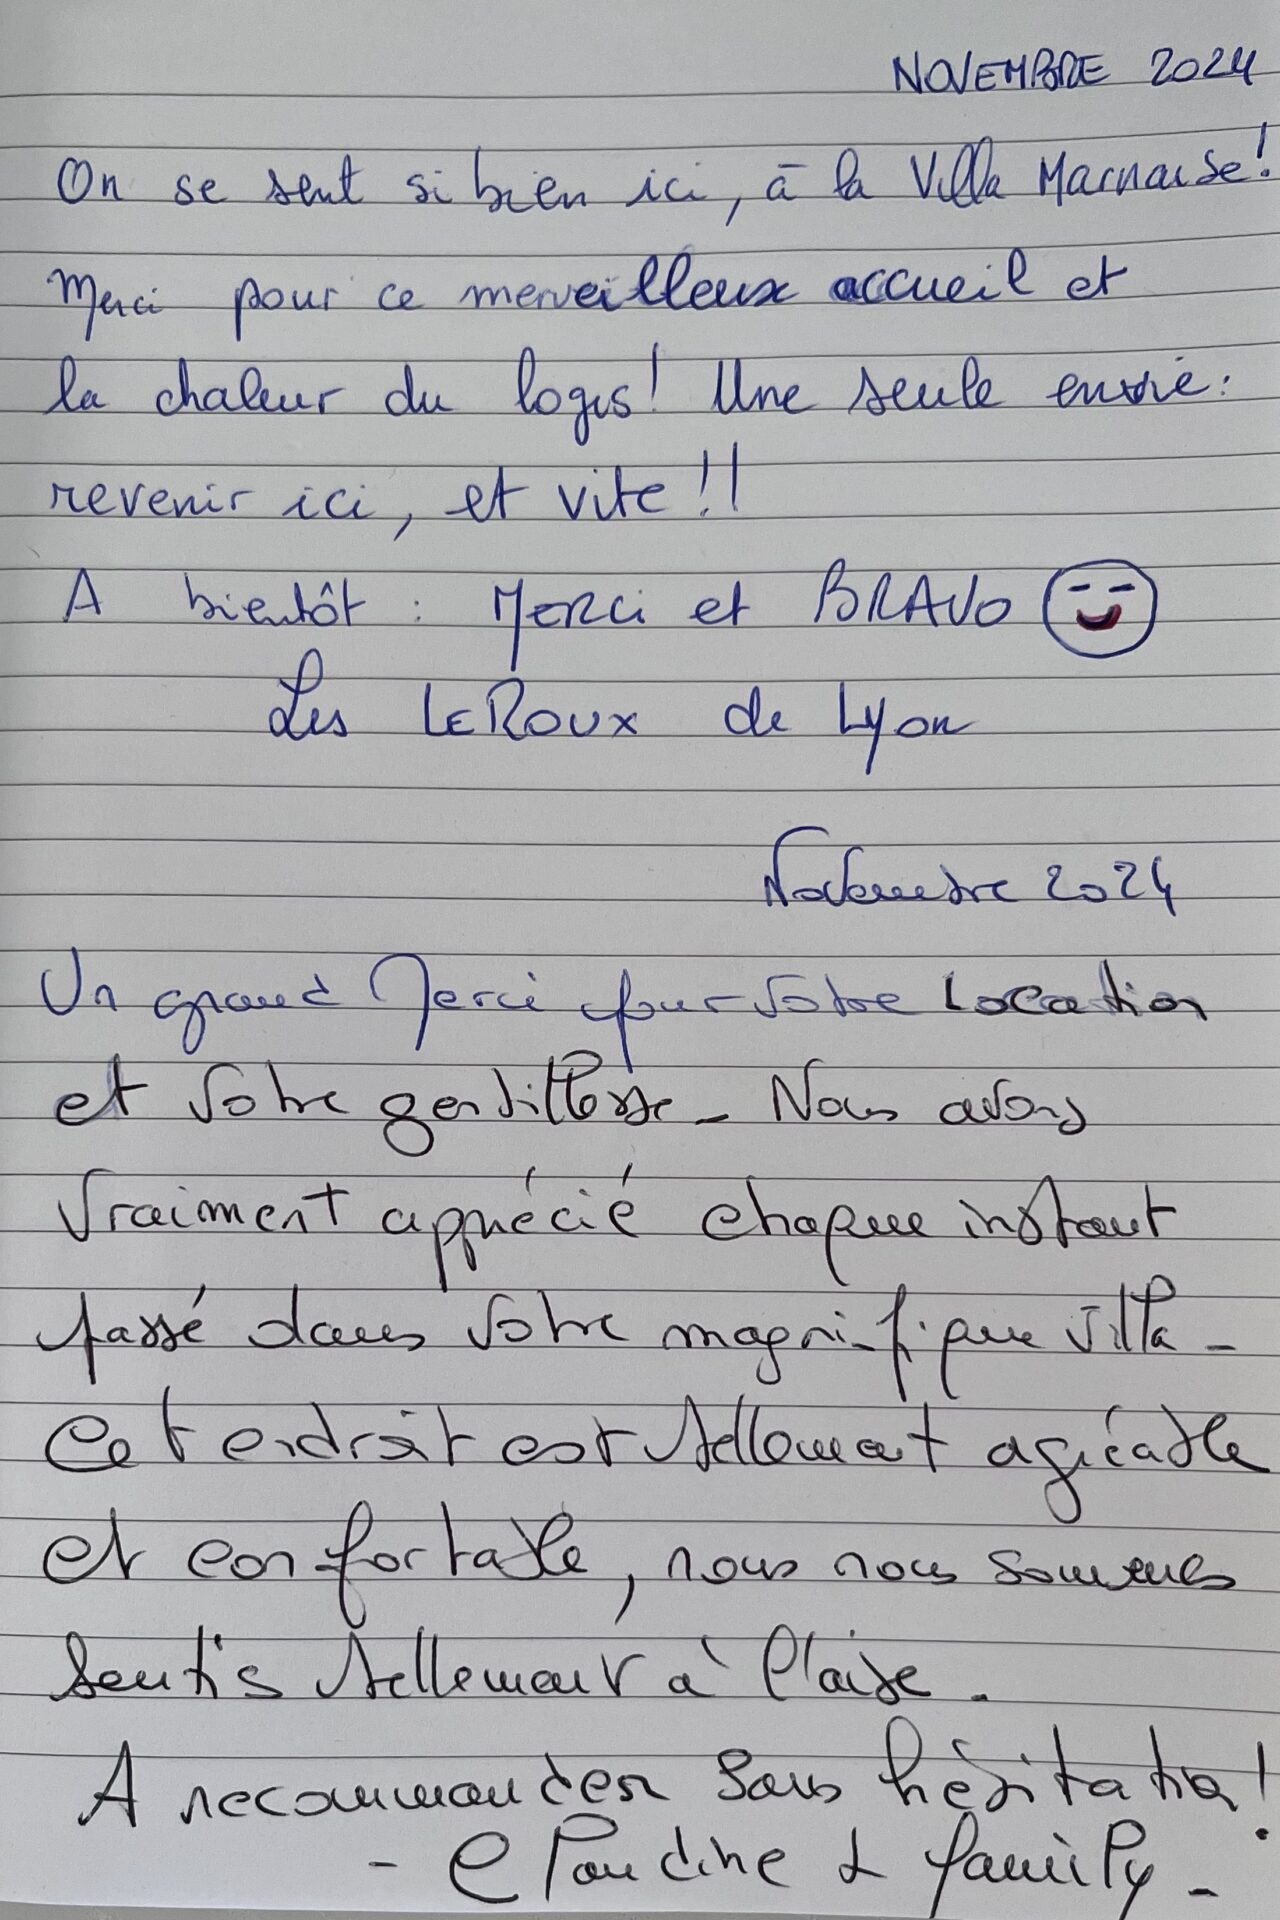 NOVEMBRE 2024
On se sent si bien ici, à la Villa Marnaise!
Merci pour ce merveilleux accueil et
la chaleur du logis! Une seule envie:
revenir ici, et vite!!
A bientôt : Merci et BRAVO
Les LEROUX de Lyon
Novembre 2024
Un grand Merci pour votre Location
et votre gentillesse_ Nous avons
vraiment apprécié chaque instant
passé dans votre magnifique villa_
Cet endroit est tellement agréable
et confortable, nous nous sommes
sentis tellement à l'aise.
A recommander sans hésitation!
- Claudine & family_